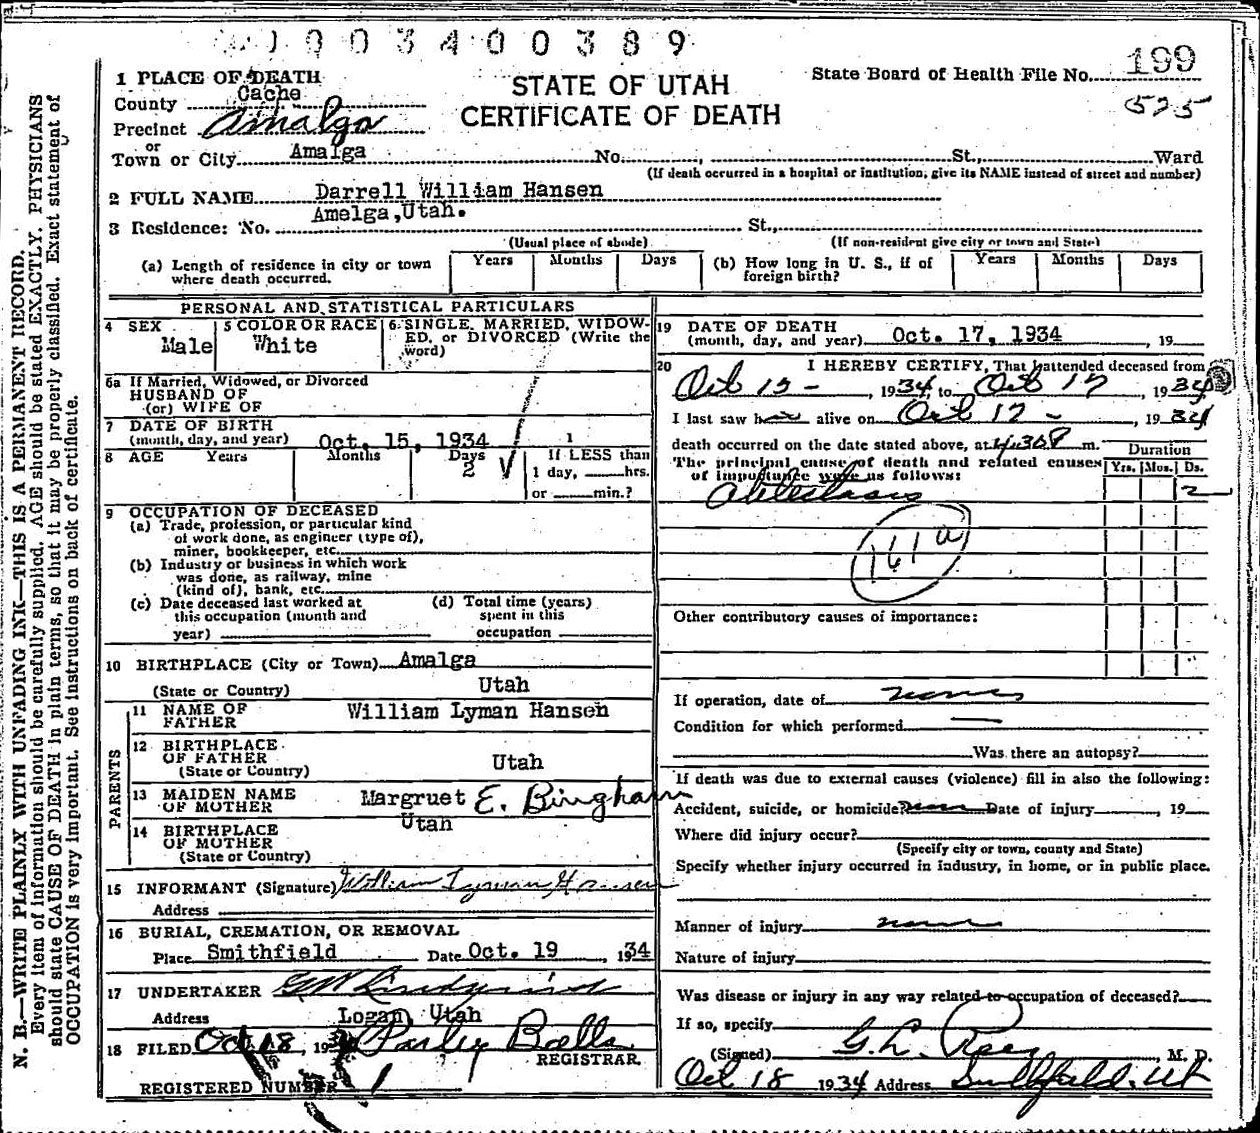 003400389
199
1 PLACE OF DEATH
STATE OF UTAH
State Board of Health File No.
County Cache
CERTIFICATE OF DEATH
575
Precinct Amalga
or
Town or City Amalga No. , St., Ward
(If death occurred in a hospital or institution, give its NAME instead of street and number)
2 FULL NAME Darrell William Hansen
Amelga,Utah.
3 Residence: No. St.,
(Usual place of abode) (If non-resident give city or town and State)
(a) Length of residence in city or town where death occurred. Years Months Days (b) How long in U. S., if of foreign birth? Years Months Days
PERSONAL AND STATISTICAL PARTICULARS
4 SEX Male 5 COLOR OR RACE White 6 SINGLE, MARRIED, WIDOW-
ED, or DIVORCED (Write the
word)
6a If Married, Widowed, or Divorced
HUSBAND OF
(or) WIFE OF
7 DATE OF BIRTH
(month, day, and year) Oct. 15, 1934 1
8 AGE Years Months Days 2 If LESS than
1 day, hrs.
or min.?
9 OCCUPATION OF DECEASED
(a) Trade, profession, or particular kind
of work done, as engineer (type of),
miner, bookkeeper, etc.
(b) Industry or business in which work
was done, as railway, mine
(kind of), bank, etc.
(c) Date deceased last worked at
this occupation (month and
year)
(d) Total time (years)
spent in this
occupation
10 BIRTHPLACE (City or Town) Amalga
(State or Country) Utah
PARENTS
11 NAME OF
FATHER William Lyman Hansen
12 BIRTHPLACE
OF FATHER
(State or Country) Utah
13 MAIDEN NAME
OF MOTHER Margruet E. Bingham
14 BIRTHPLACE
OF MOTHER
(State or Country) Utah
15 INFORMANT (Signature) William Lyman Hansen
Address
16 BURIAL, CREMATION, OR REMOVAL
Place Smithfield Date Oct. 19 , 1934
17 UNDERTAKER
Address Logan, Utah
18 FILED Oct 18, 19 Parley Balls
REGISTRAR.
REGISTERED NUMBER 1
19 DATE OF DEATH
(month, day, and year) Oct. 17, 1934 , 19
20 I HEREBY CERTIFY, That I attended deceased from
Oct 15 - , 1934, to Oct 17 , 1934
I last saw h alive on Oct 17 - , 1934
death occurred on the date stated above, at 4.30P m.
Duration
The principal cause of death and related causes
of importance were as follows: Yrs. Mos. Ds.
Atelectasis 2
161a
Other contributory causes of importance:
If operation, date of none
Condition for which performed —
Was there an autopsy?
If death was due to external causes (violence) fill in also the following:
Accident, suicide, or homicide? Date of injury , 19
Where did injury occur?
(Specify city or town, county and State)
Specify whether injury occurred in industry, in home, or in public place.
Manner of injury none
Nature of injury
Was disease or injury in any way related to occupation of deceased?
If so, specify
(Signed) G. L. Rees , M. D.
Oct 18 1934 Address Smithfield, Ut
N. B.—WRITE PLAINLY WITH UNFADING INK—THIS IS A PERMANENT RECORD.
Every item of information should be carefully supplied. AGE should be stated EXACTLY. PHYSICIANS
should state CAUSE OF DEATH in plain terms, so that it may be properly classified. Exact statement of
OCCUPATION is very important. See instructions on back of certificate.